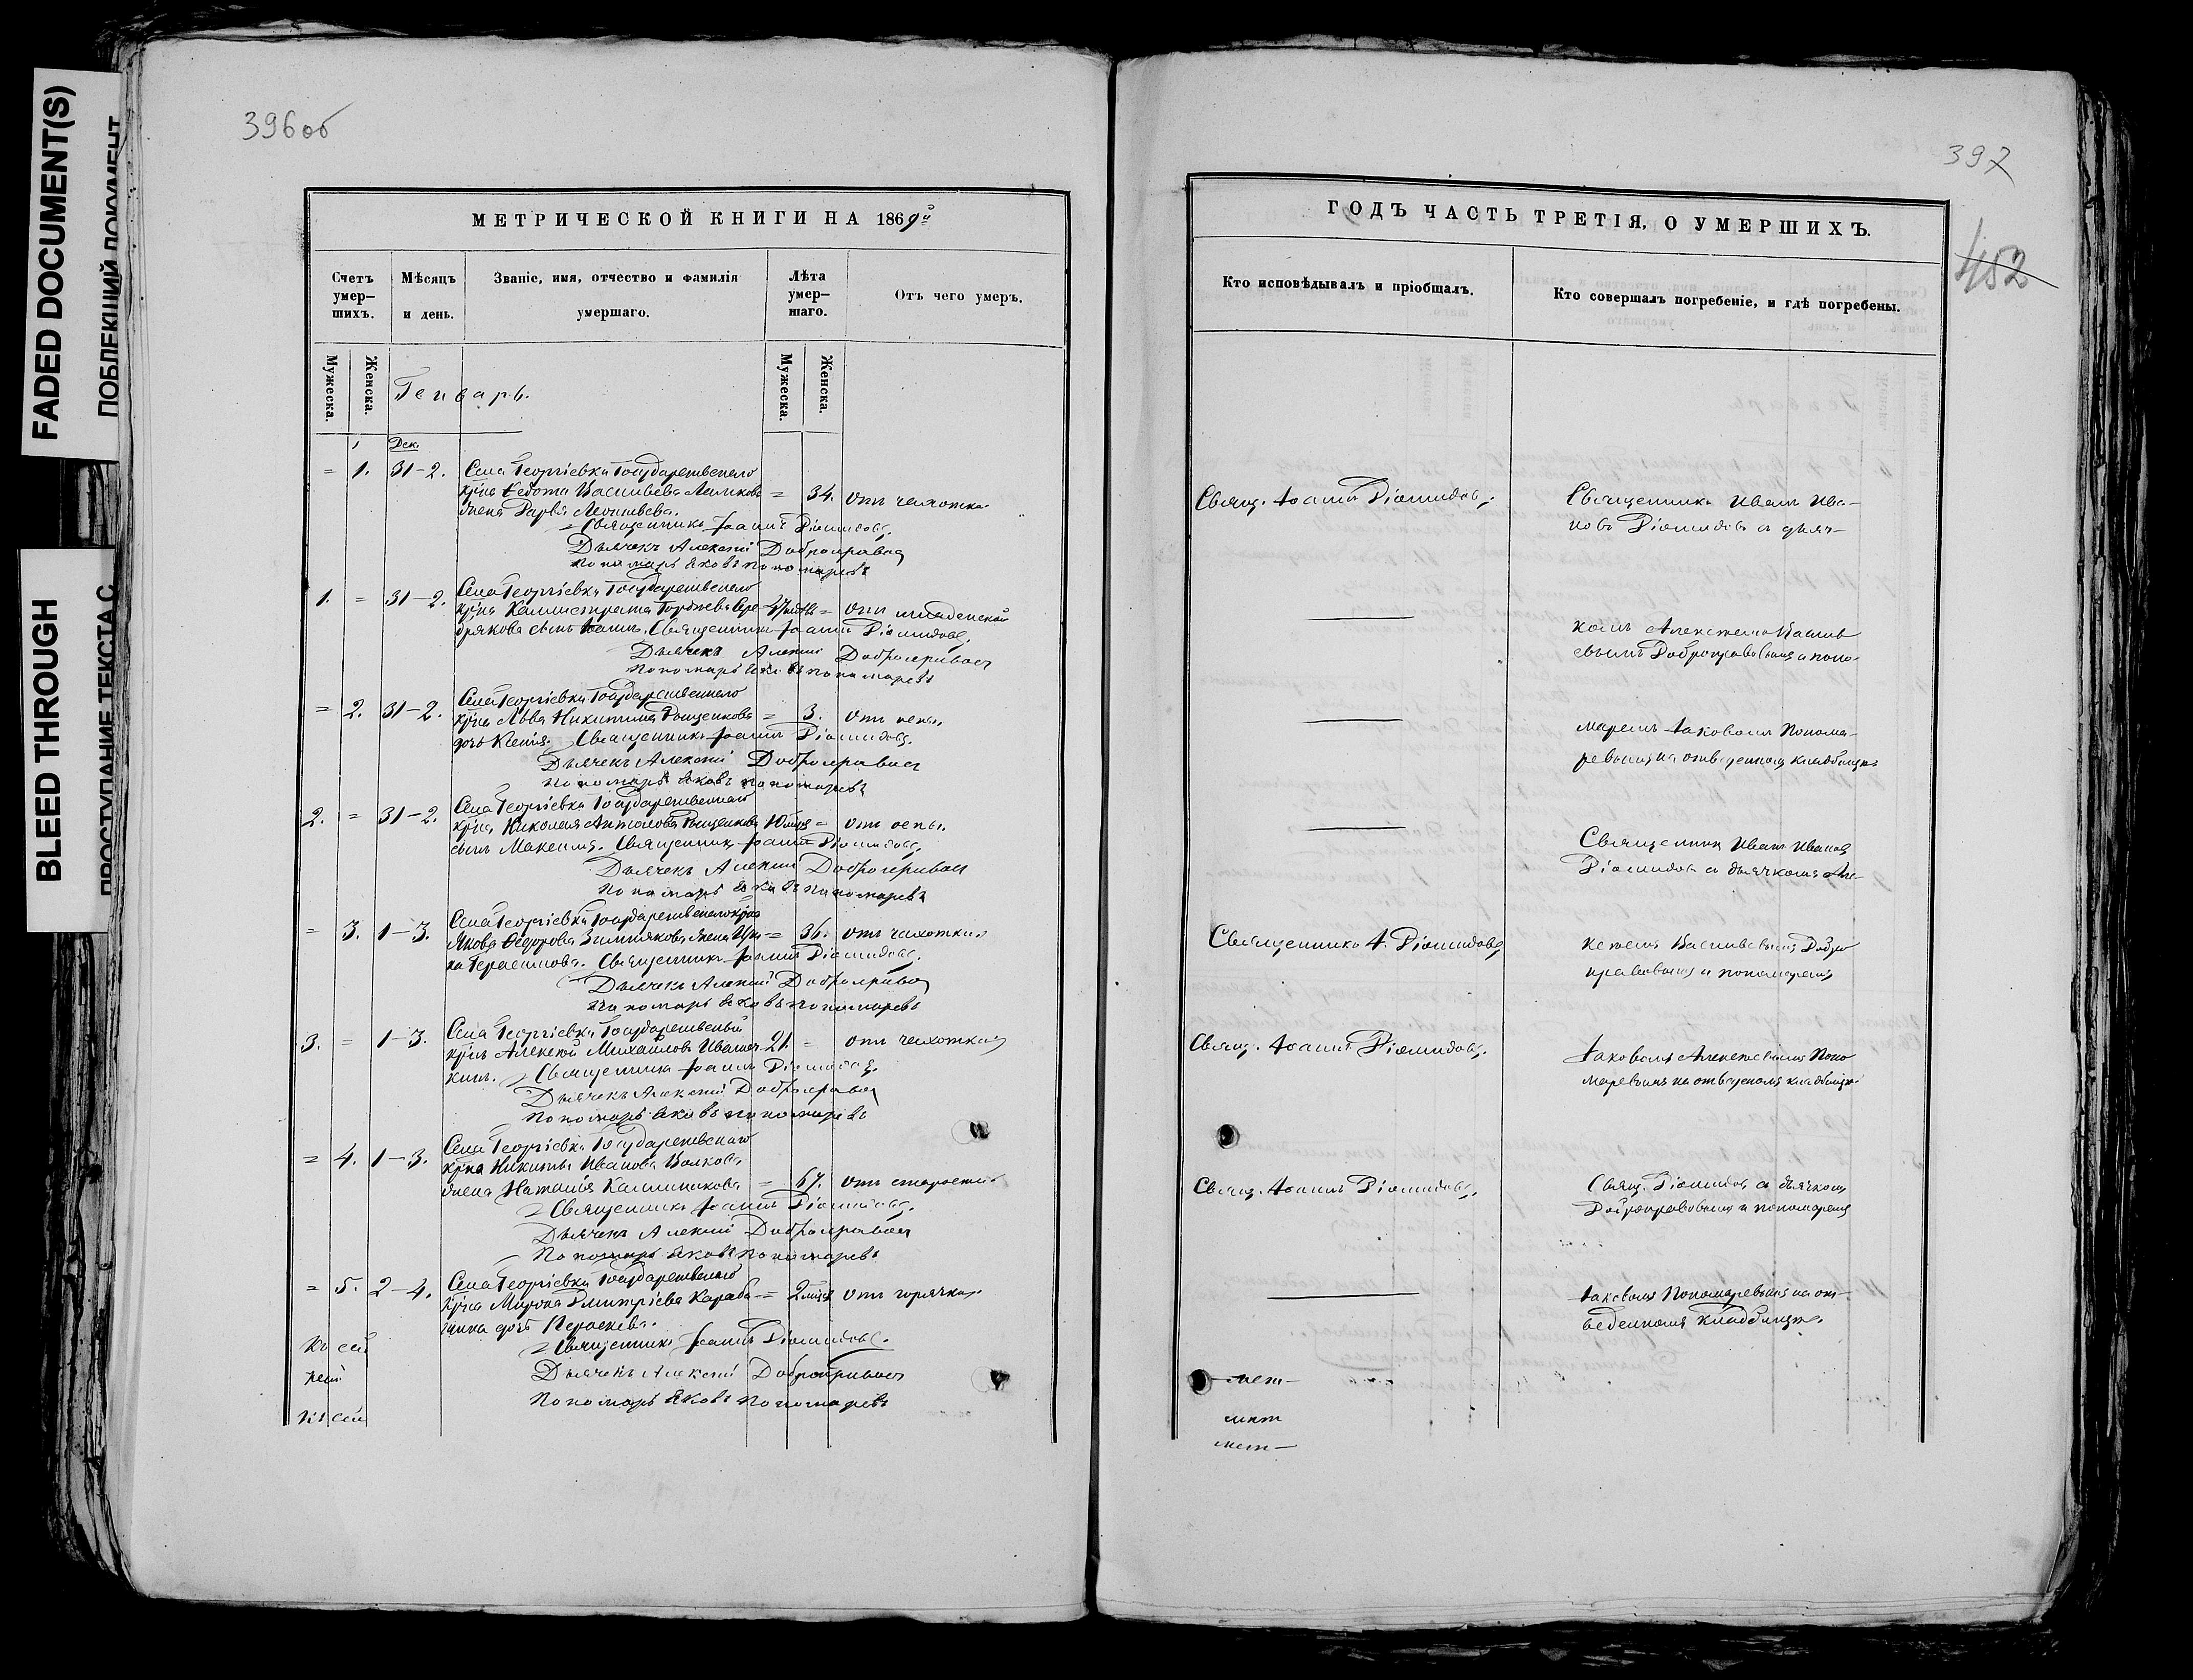 FADED DOCUMENT(S)
ПОБЛЕКШИЙ ДОКУМЕНТ
BLEED THROUGH
ПРОСТУПАНИЕ ТЕКСТА С
396об
МЕТРИЧЕСКОЙ КНИГИ НА 1869й
Счетъ умер–шихъ.
Мѣсяцъ и день.
Званіе, имя, отчество и фамилія умершаго.
Лѣта умер–шаго.
Отъ чего умеръ.
Мужеска.
Женска.
Генварь.
Мужеска.
Женска.
Дек.
= 1. 31–2. Села Георгіевки Государственнаго
кр̃на Федота Васильева жена Дарья Леонтьева. = 34. отъ чахотки
Священникъ Іоаннъ Діомидовъ.
Дьячекъ Алексій Добронравовъ
Пономарь Яковъ Пономаревъ
1. = 31–2. Села Георгіевки Государственнаго
кр̃на Каллистрата Гордѣева =
сынъ Іоаннъ. Священникъ Іоаннъ Діомидовъ. отъ младенской
Дьячекъ Алексій Добронравовъ
Пономарь Яковъ Пономаревъ
= 2. 31–2. Села Георгіевки Государственнаго
кр̃на Льва Никитина = 3. отъ оспы.
дочь Ксенія. Священникъ Іоаннъ Діомидовъ.
Дьячекъ Алексій Добронравовъ
Пономарь Яковъ Пономаревъ
2. = 31–2. Села Георгіевки Государственнаго
кр̃на Николая Антонова = отъ оспы.
сынъ Максимъ. Священникъ Іоаннъ Діомидовъ.
Дьячекъ Алексій Добронравовъ
Пономарь Яковъ Пономаревъ
= 3. 1–3. Села Георгіевки Государственнаго кр̃на
Якова Федорова Зимнякова жена = 36. отъ чахотки
Герасимова. Священникъ Іоаннъ Діомидовъ.
Дьячекъ Алексій Добронравовъ
Пономарь Яковъ Пономаревъ
3. = 1–3. Села Георгіевки Государственный
кр̃нъ Алексѣй Михайловъ Ивашеч– 21. = отъ чахотки
кинъ. Священникъ Іоаннъ Діомидовъ.
Дьячекъ Алексій Добронравовъ
Пономарь Яковъ Пономаревъ
= 4. 1–3. Села Георгіевки Государственнаго
кр̃на Никиты Иванова Волкова
жена Наталія Калиникова = 67. отъ старости
Священникъ Іоаннъ Діомидовъ.
Дьячекъ Алексій Добронравовъ
Пономарь Яковъ Пономаревъ
= 5. 2–4. Села Георгіевки Государственнаго
кр̃на Мирона Дмитріева Караба– = 2 отъ горячки.
дочь Параскева.
Священникъ Іоаннъ Діомидовъ.
Дьячекъ Алексій Добронравовъ
Пономарь Яковъ Пономаревъ
397
452
ГОДЪ ЧАСТЬ ТРЕТІЯ, О УМЕРШИХЪ.
Кто исповѣдывалъ и пріобщалъ.
Кто совершалъ погребеніе, и гдѣ погребены.
Свящ. Іоаннъ Діомидовъ.
Священникъ Иванъ Ива–
новъ Діомидовъ съ дьяч–
комъ Алексѣемъ Василь
евымъ Добронравовымъ и поно–
маремъ Іаковомъ Понома–
ревымъ на отведенномъ кладбищѣ
Священникъ Иванъ Ивановъ
Діомидовъ съ дьячкомъ Але–
Священникъ І. Діомидовъ
ксѣемъ Васильевымъ Добро
нравовымъ и пономаремъ
Свящ. Іоаннъ Діомидовъ.
Іаковомъ Алексѣевымъ Поно
маревымъ на отведеномъ кладбищѣ.
Свящ. Іоаннъ Діомидовъ.
Свящ. Діомидовъ съ дьячкомъ
Добронравовымъ и пономаремъ
Іаковомъ Пономаревымъ на от–
веденномъ кладбищѣ.